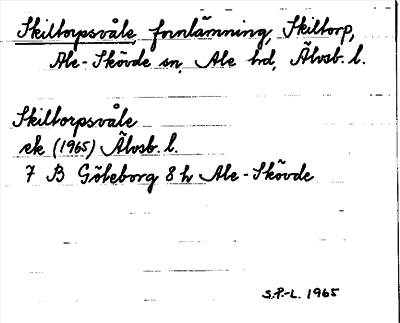 Skiltorpsvåle, fornlämning, Skiltorp,
Ale-Skövde sn, Ale hd, Älvsb. l.
Skiltorpsvåle
ek (1965) Älvsb. l.
7 B Göteborg 8 h Ale-Skövde
S.P.-L. 1965